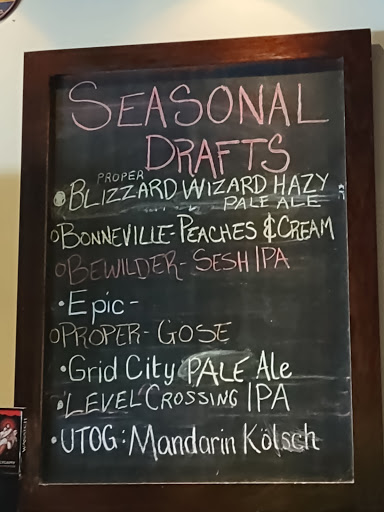 SEASONAL
DRAFTS
PROPER
• BLIZZARD WIZARD HAZY
PALE ALE
○ BONNEVILLE - PEACHES & CREAM
○ BEWILDER - SESH IPA
• Epic -
○ PROPER - GOSE
• Grid City PALE Ale
• LEVEL CROSSING IPA
• UTOG: Mandarin Kölsch